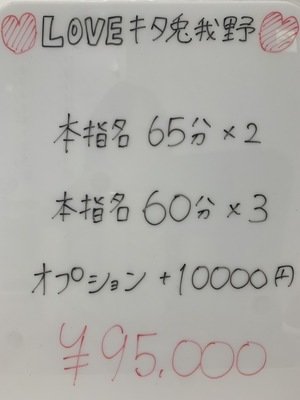 LOVEキタ兎我野
本指名 65分×2
本指名 60分×3
オプション +10000円
¥95,000